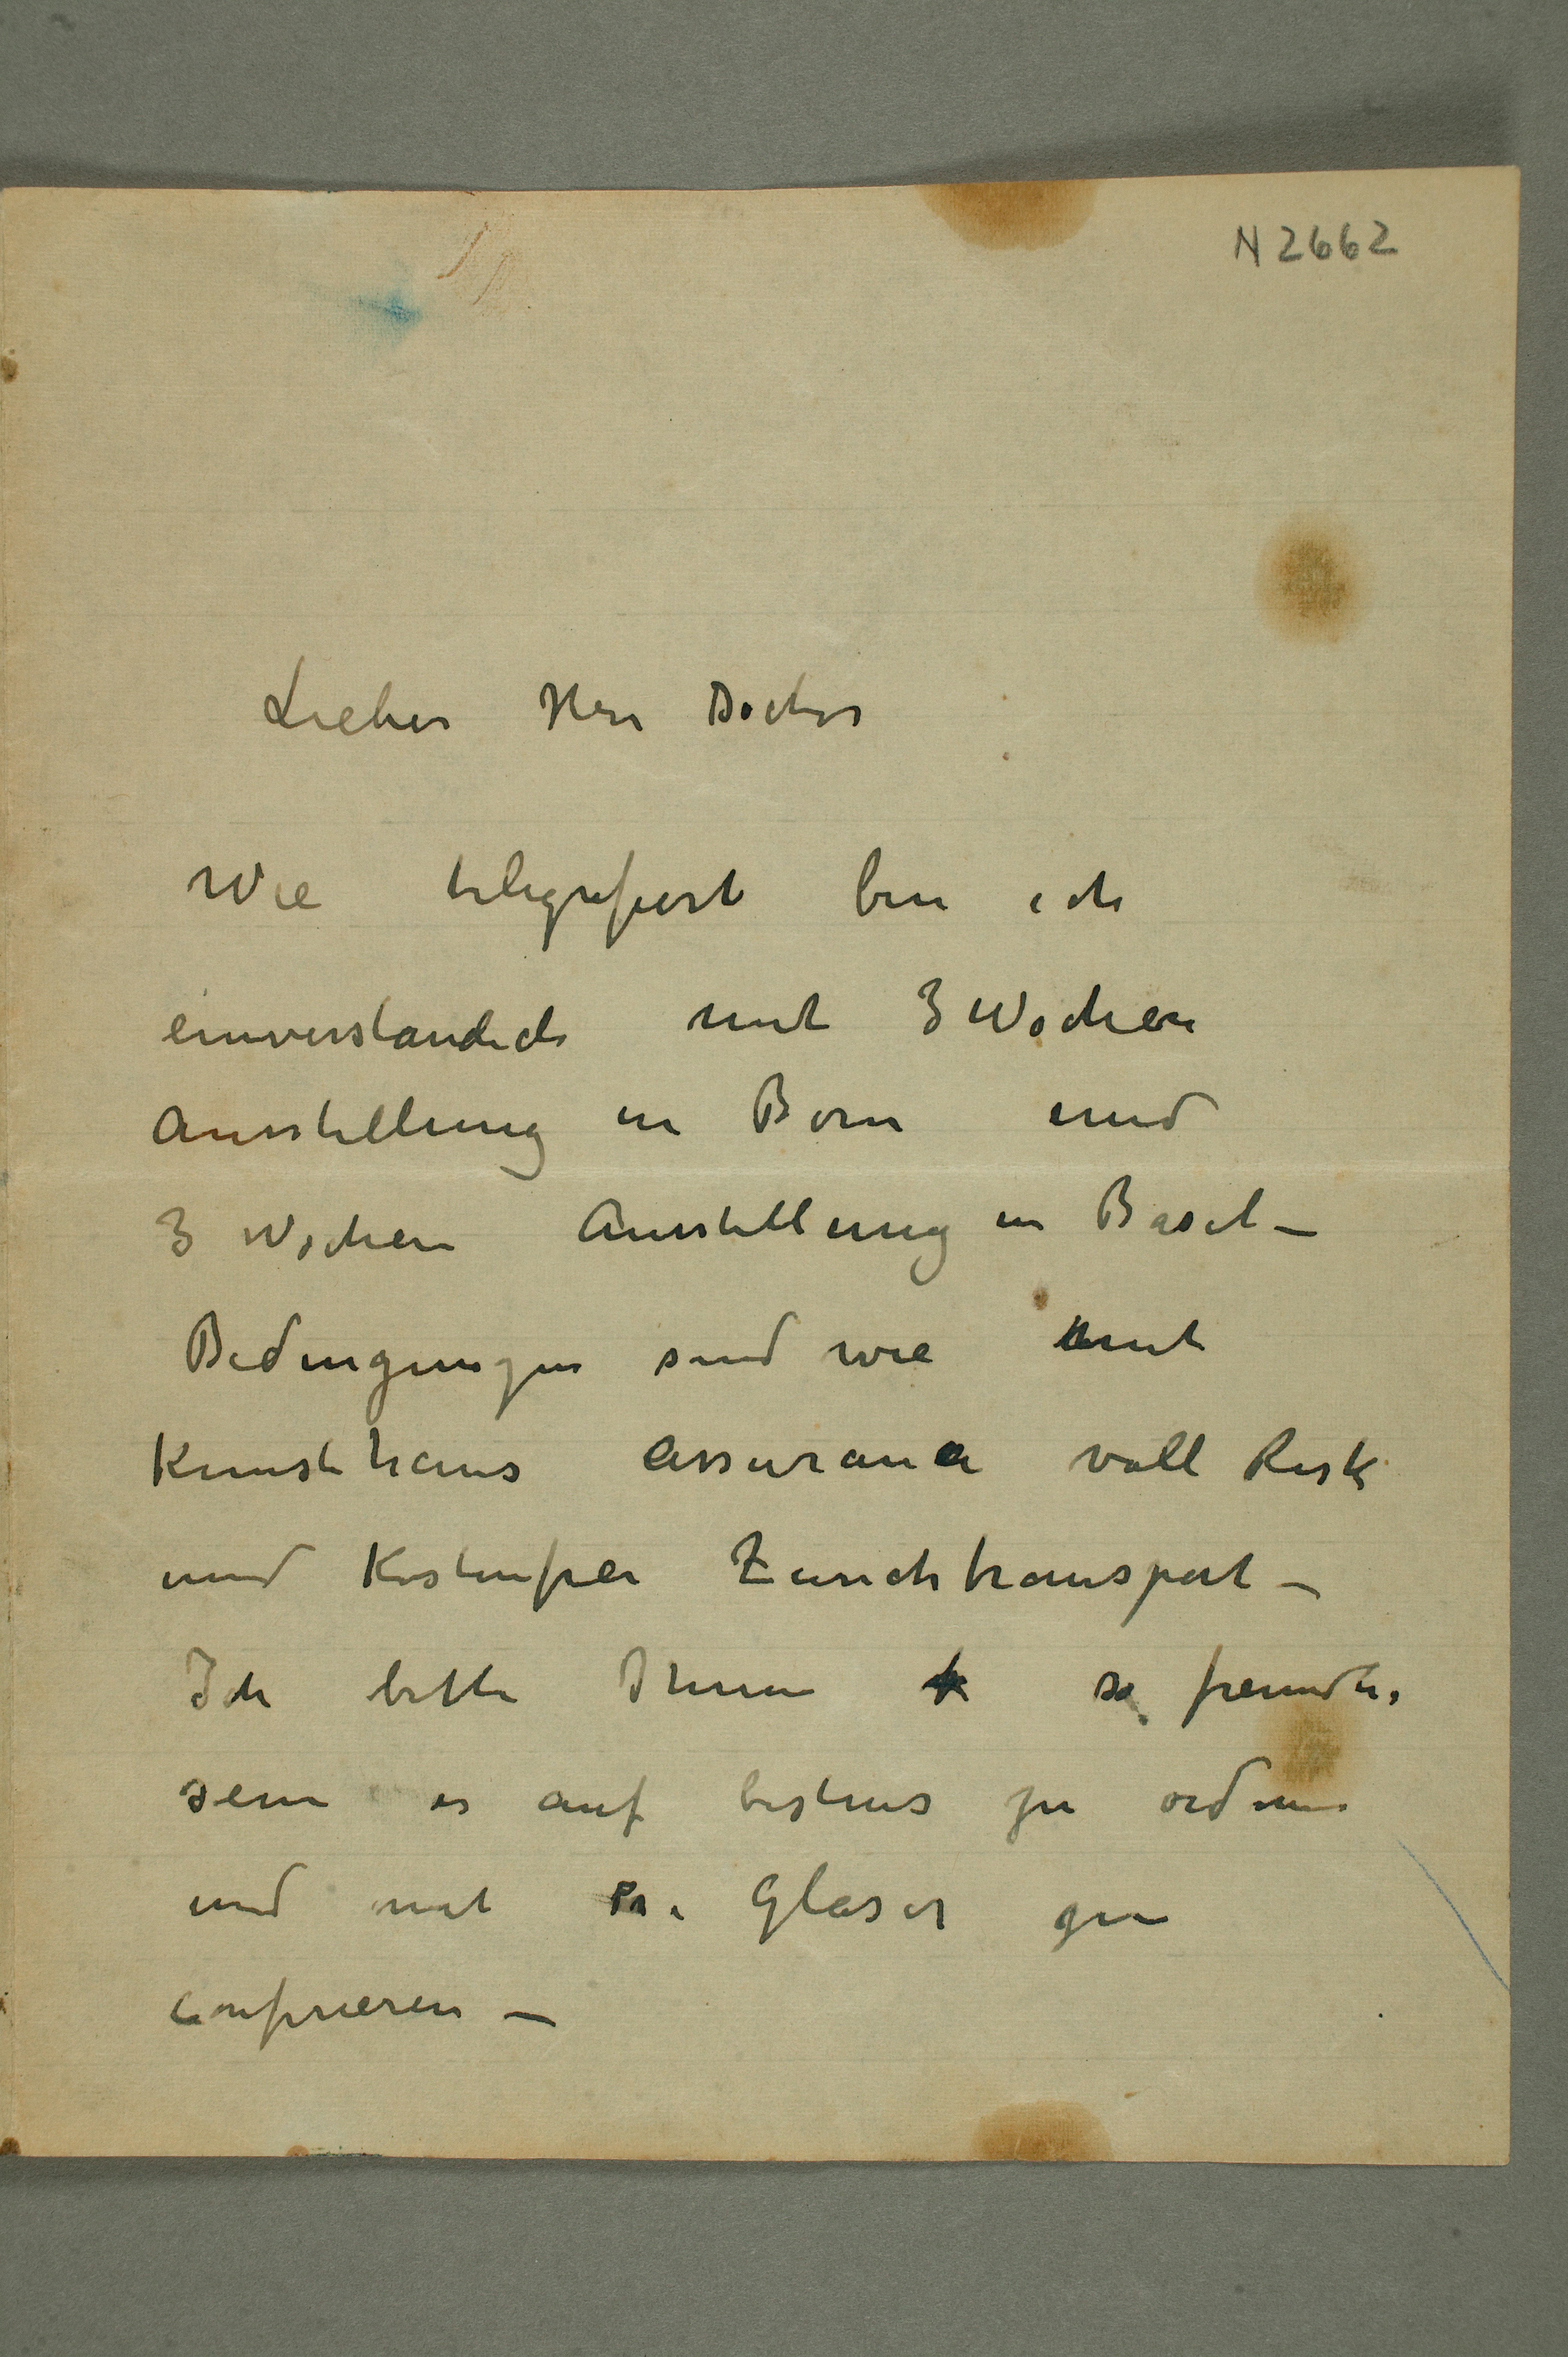 N 2662
Lieber Herr Doctor
Wie telegrafiert bin ich
einverstandich mit 3 Wochen
Ausstellung in Bern und
3 Wochen Ausstellung in Basel –
Bedingungen sind wie mit
Kunsthaus Assurance voll Risk
und Kostenfrei Zurichtransport –
Ich bitte Ihnen so freundl.
sein es auf bestens zu ordnen
und mit Glaser zu
confrieren –